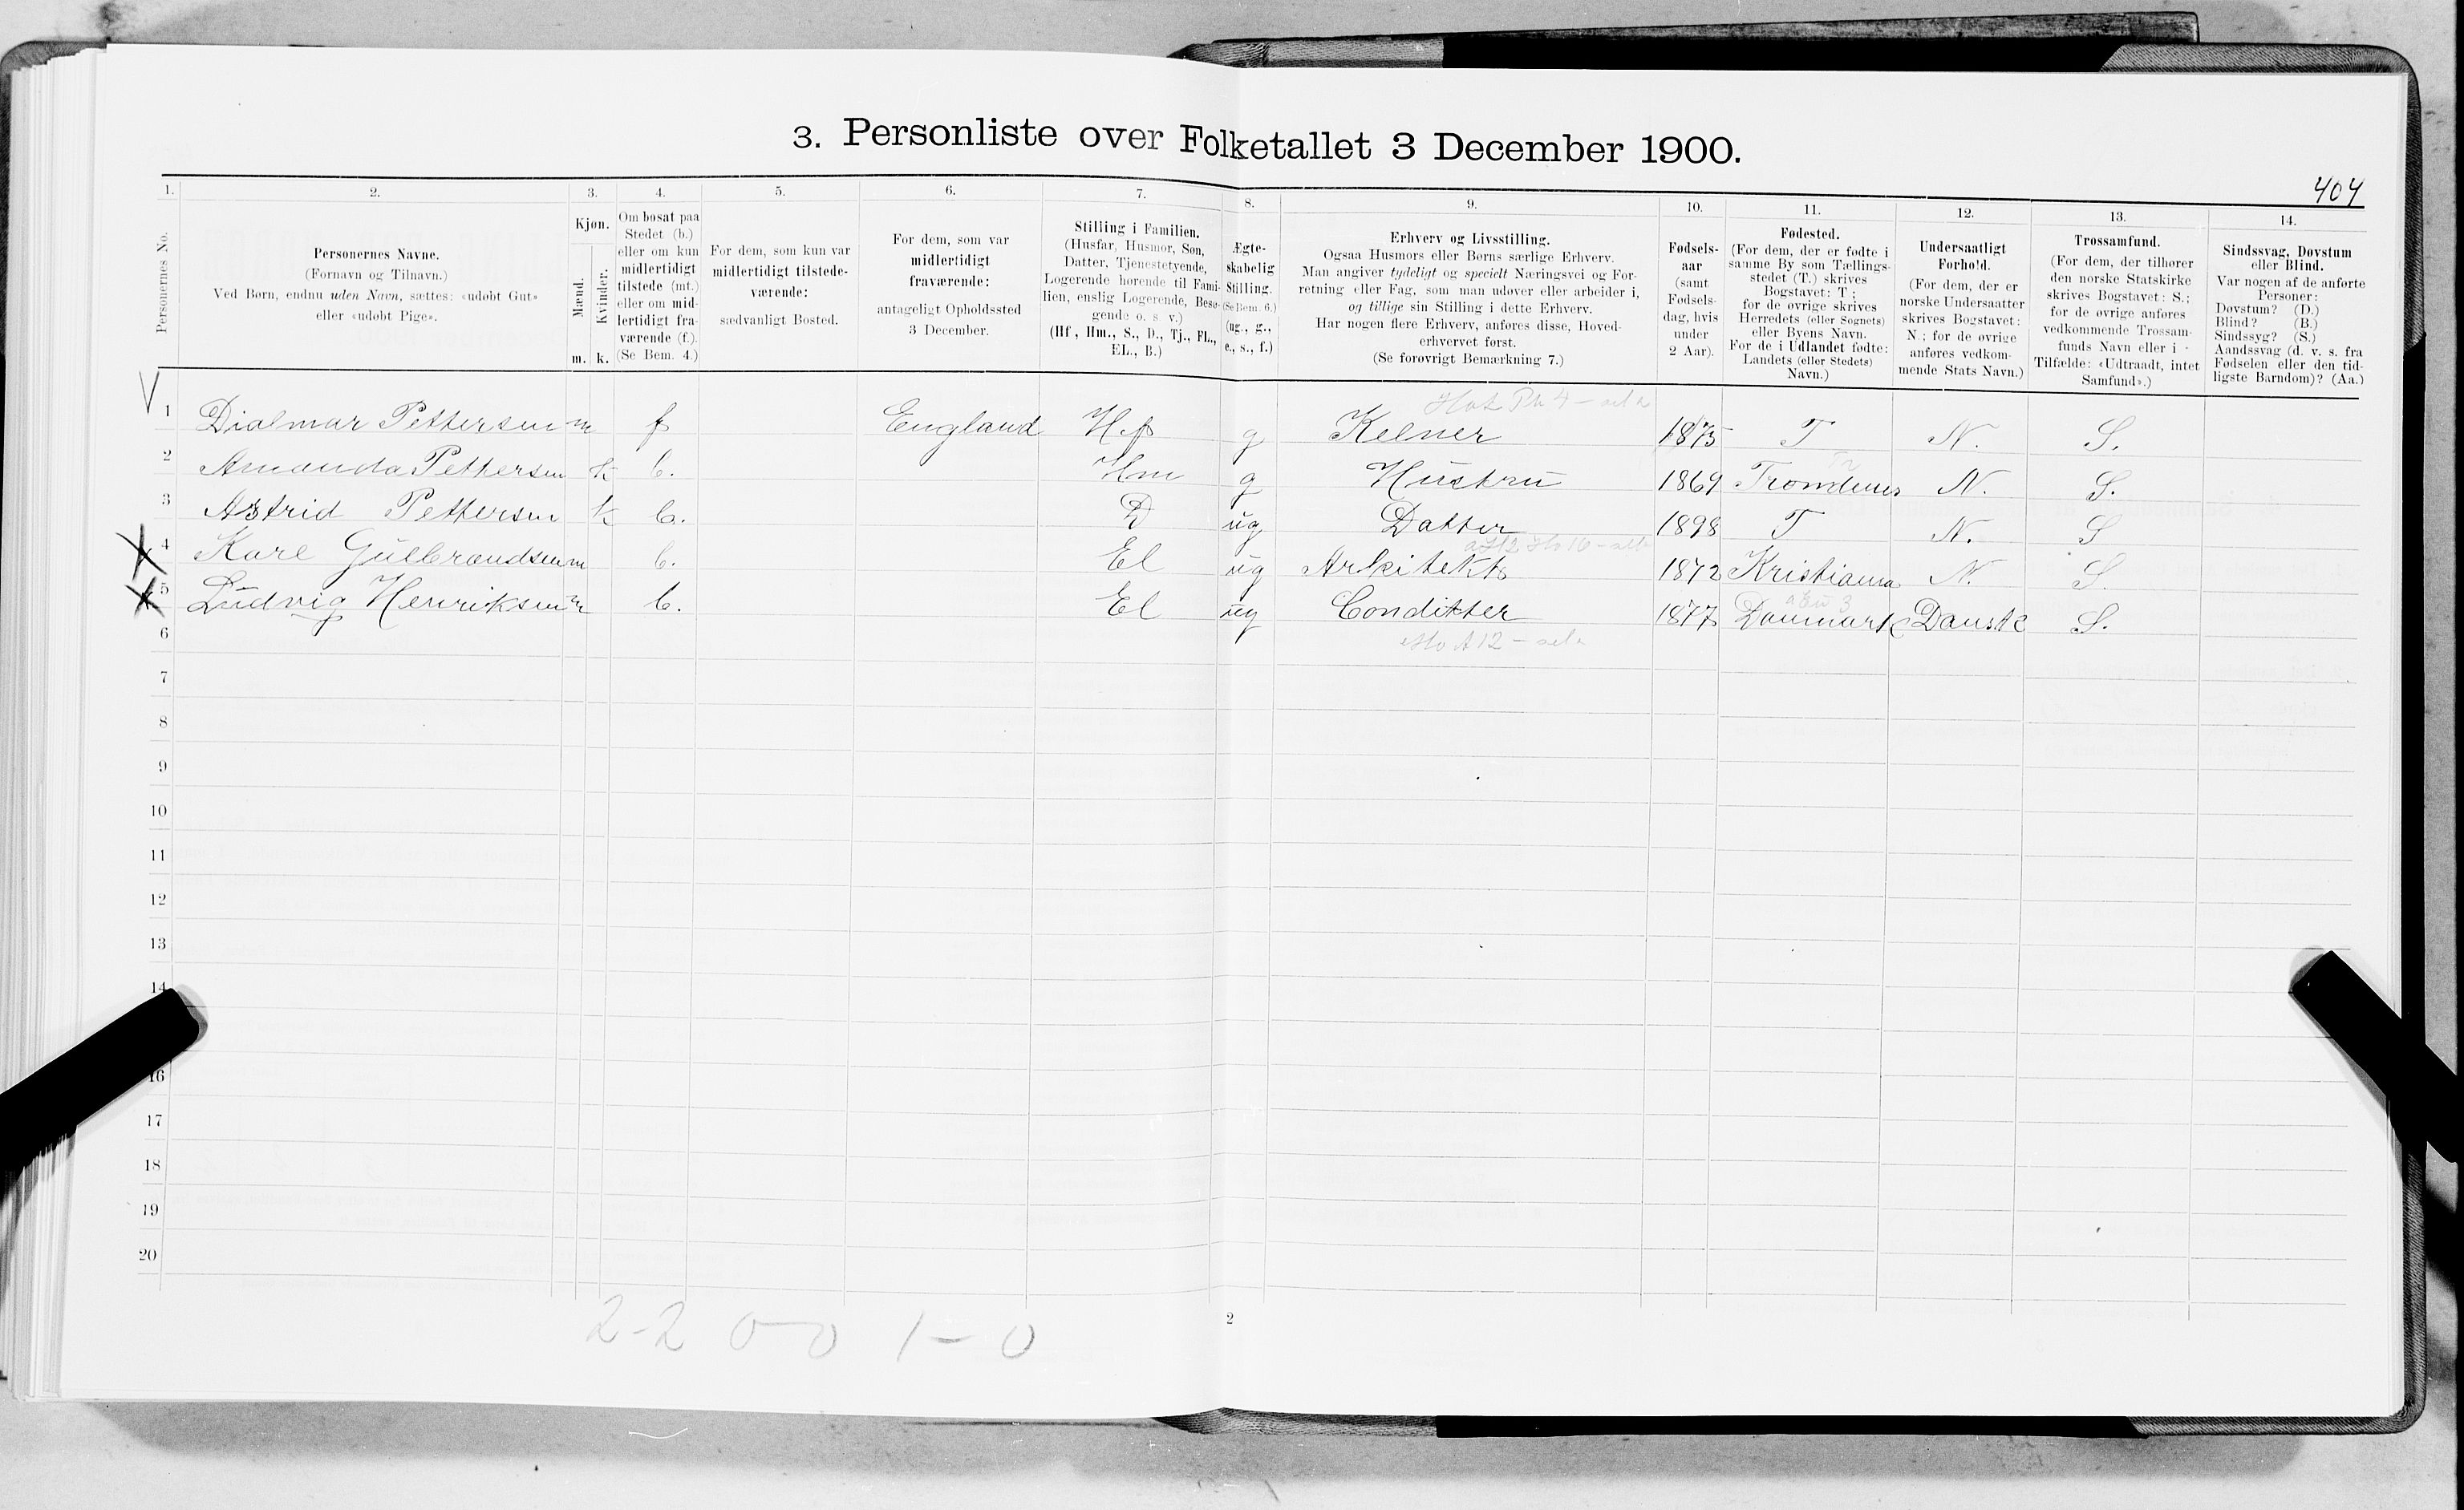 3. Personliste over Folketallet 3 December 1900.
404
1. 2. 3. 4. 5. 6. 7. 8. 9. 10. 11. 12. 13. 14.
Personernes No.
Personernes Navne.
(Fornavn og Tilnavn.)
Ved Børn, endnu uden Navn, sættes: «udøbt Gut»
eller «udøbt Pige».
Kjøn.
Mænd.
m.
Kvinder.
k.
Om bosat paa
Stedet (b.)
eller om kun
midlertidigt
tilstede (mt.)
eller om mid-
lertidigt fra-
værende (f.).
(Se Bem. 4.)
For dem, som kun var
midlertidigt tilstede-
værende:
sædvanligt Bosted.
For dem, som var
midlertidigt
fraværende:
antageligt Opholdssted
3 December.
Stilling i Familien.
(Husfar, Husmor, Søn,
Datter, Tjenestetyende,
Logerende hørende til Fami-
lien, enslig Logerende, Besø-
gende o. s. v.)
(Hf., Hm., S., D., Tj., FL.,
EL., B.)
Ægte-
skabelig
Stilling.
(Se Bem. 6.)
(ug., g.,
e., s., f.)
Erhverv og Livsstilling.
Ogsaa Husmors eller Børns særlige Erhverv.
Man angiver tydeligt og specielt Næringsvei og For-
retning eller Fag, som man udøver eller arbeider i,
og tillige sin Stilling i dette Erhverv.
Har nogen flere Erhverv, anføres disse, Hoved-
erhvervet først.
(Se forøvrigt Bemærkning 7.)
Fødsels-
aar
(samt
Fødsels-
dag, hvis
under
2 Aar).
Fødested.
(For dem, der er fødte i
samme By som Tællings-
stedet (T.) skrives
Bogstavet: T;
for de øvrige skrives
Herredets (eller Sognets)
eller Byens Navn.
For de i Udlandet fødte:
Landets (eller Stedets)
Navn.)
Undersaatligt
Forhold.
(For dem, der er
norske Undersaatter
skrives Bogstavet:
N.; for de øvrige
anføres vedkom-
mende Stats Navn.)
Trossamfund.
(For dem, der tilhører
den norske Statskirke
skrives Bogstavet: S.;
for de øvrige anføres
vedkommende Trossam-
funds Navn eller i
Tilfælde: «Udtraadt, intet
Samfund».)
Sindssvag, Døvstum
eller Blind.
Var nogen af de anførte
Personer:
Døvstum? (D.)
Blind? (B.)
Sindssyg? (S.)
Aandssvag (d. v. s. fra
Fødselen eller den tid-
ligste Barndom)? (Aa.)
1 Dialmar Pettersen m f England Hf g Kelner 1875 T N. S.
2 Amanda Pettersen k b. Hm g Hustru 1869 Tromdenes N. S.
3 Astrid Pettersen k b. D ug Datter 1898 T N. S
4 Karl Gulbrandsen m b. El ug Arkitekt 1872 Kristiania N. S.
5 Ludvig Henriksen m b. El ug Conditter 1877 Danmark Dansk S.
6
7
8
9
10
11
12
13
14
16
17
18
19
20
2-2 0-0 1-0
2